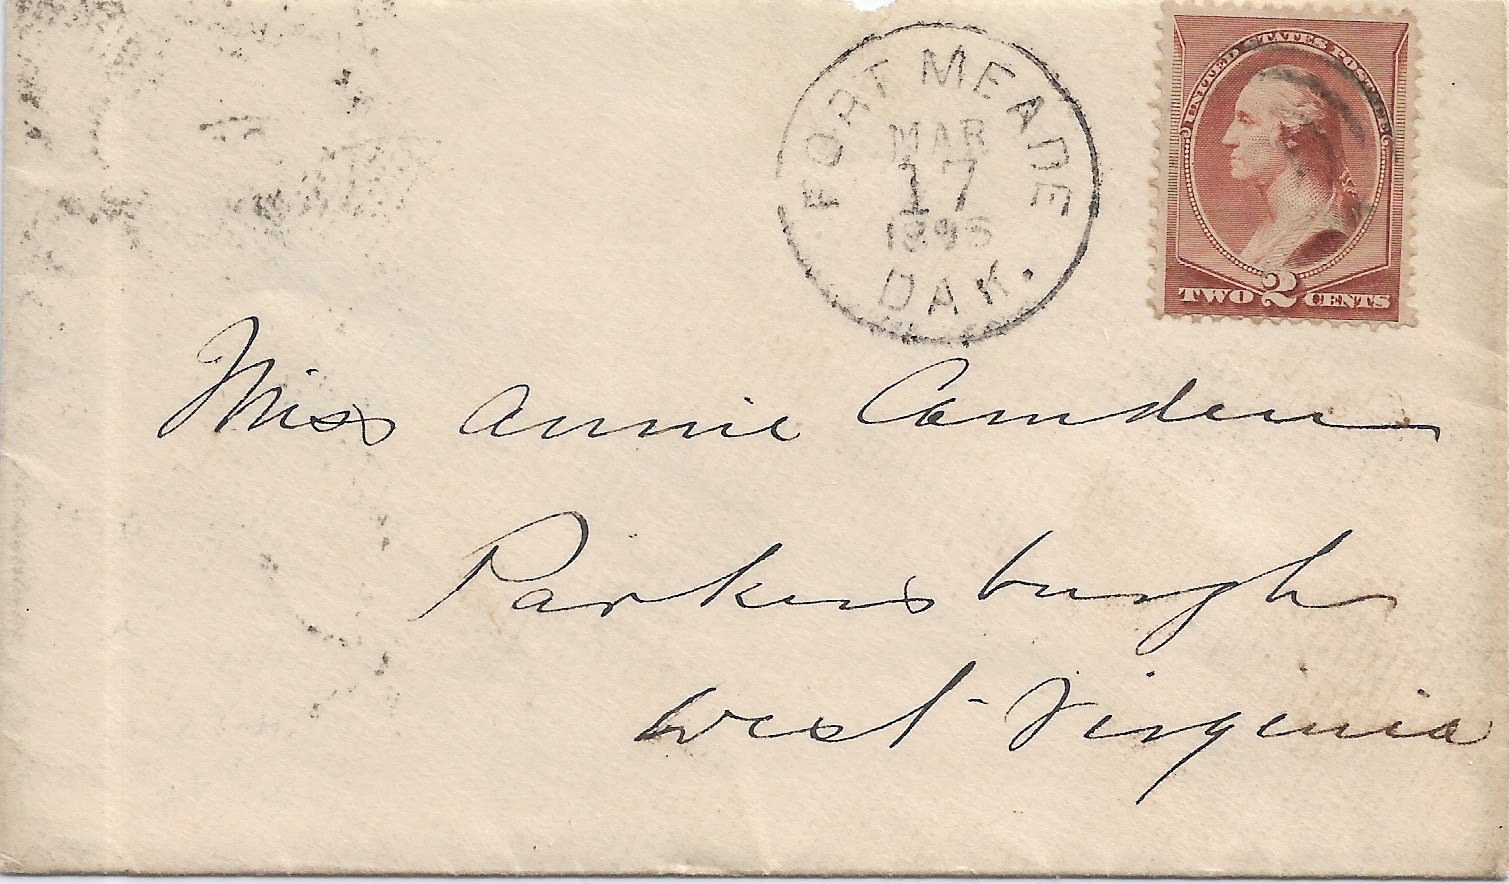 FORT MEADE
MAR
17
DAK.
UNITED STATES POSTAGE
TWO 2 CENTS
Miss Annie Camden
Parkersburgh
West Virginia